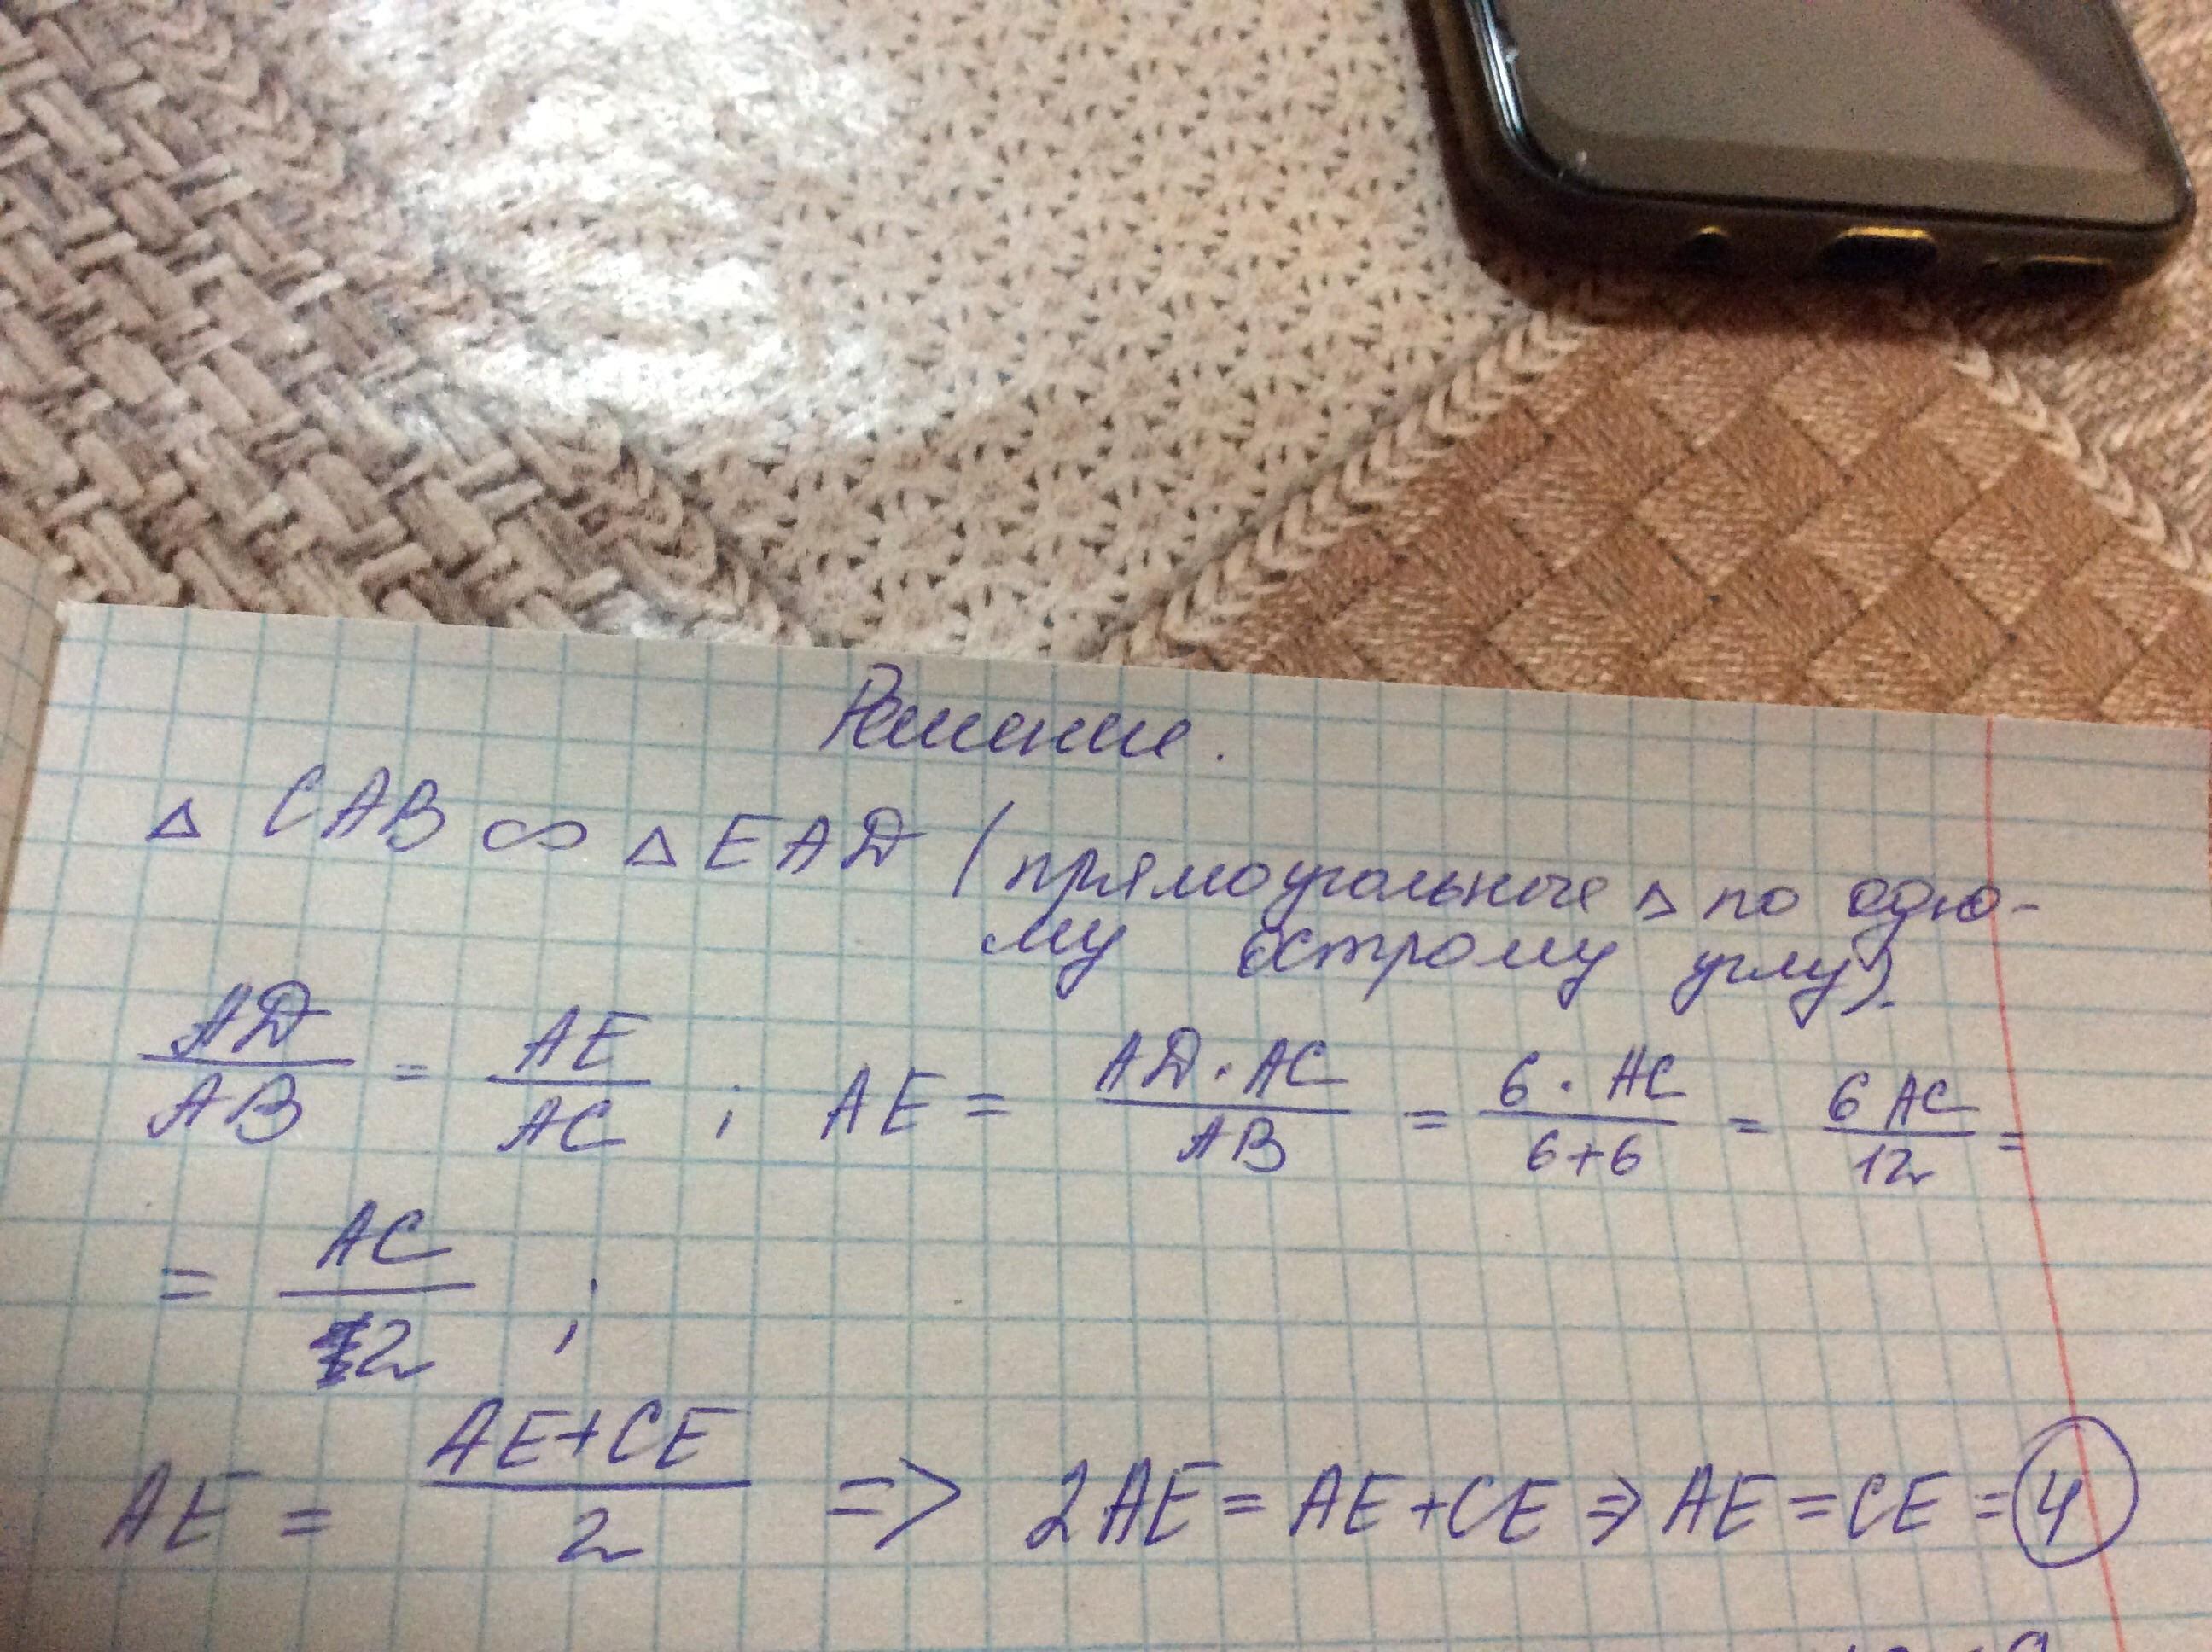 Решение.
△ CAB ∞ △ EAD (прямоугольные △ по одно-
му острому углу).
AD/AB = AE/AC ; AE = AD·AC/AB = 6·AC/6+6 = 6 AC/12 =
= AC/2 ;
AE = AE+CE/2 => 2AE = AE+CE => AE = CE = 4